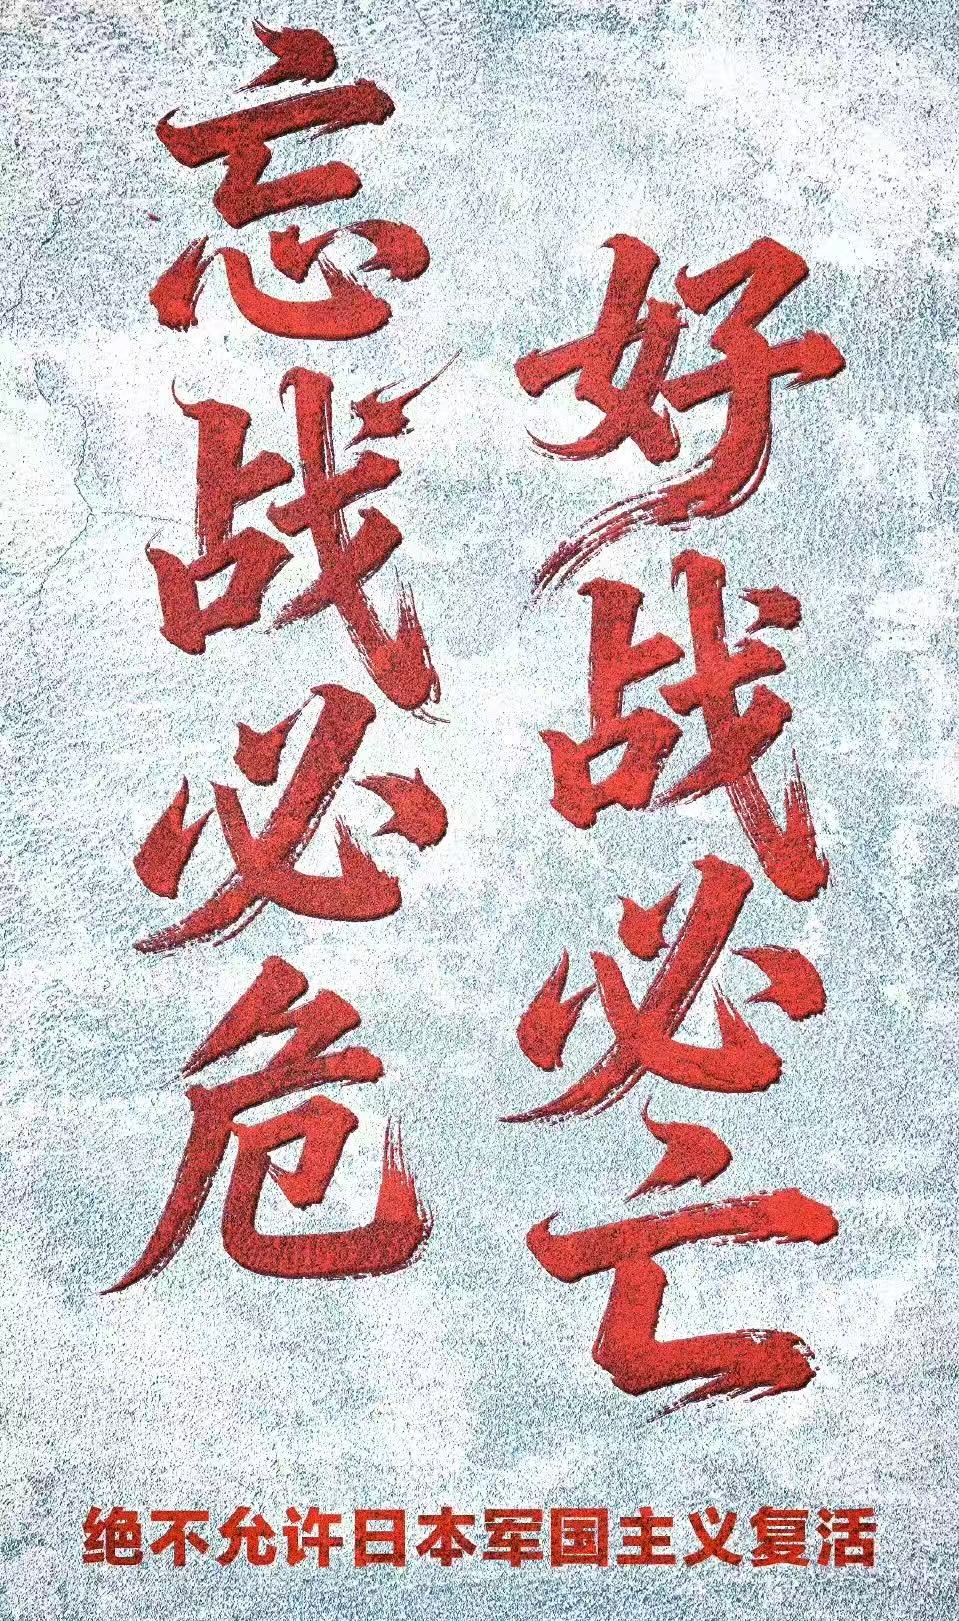 好战必亡
忘战必危
绝不允许日本军国主义复活